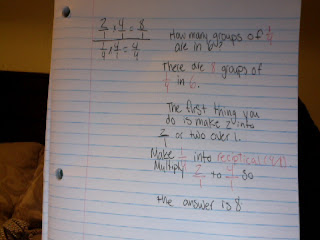 2/1 × 4/1 = 8/1
1/4 × 4/1 = 4/4
How many groups of 1/4
are in 6?
There are 8 groups of
1/4 in 6.
The first thing you
do is make 2 into
2/1 or two over 1.
Make 1/4 into reciptical (4/1)
Multiply 2/1 to 4/1 so
the answer is 8